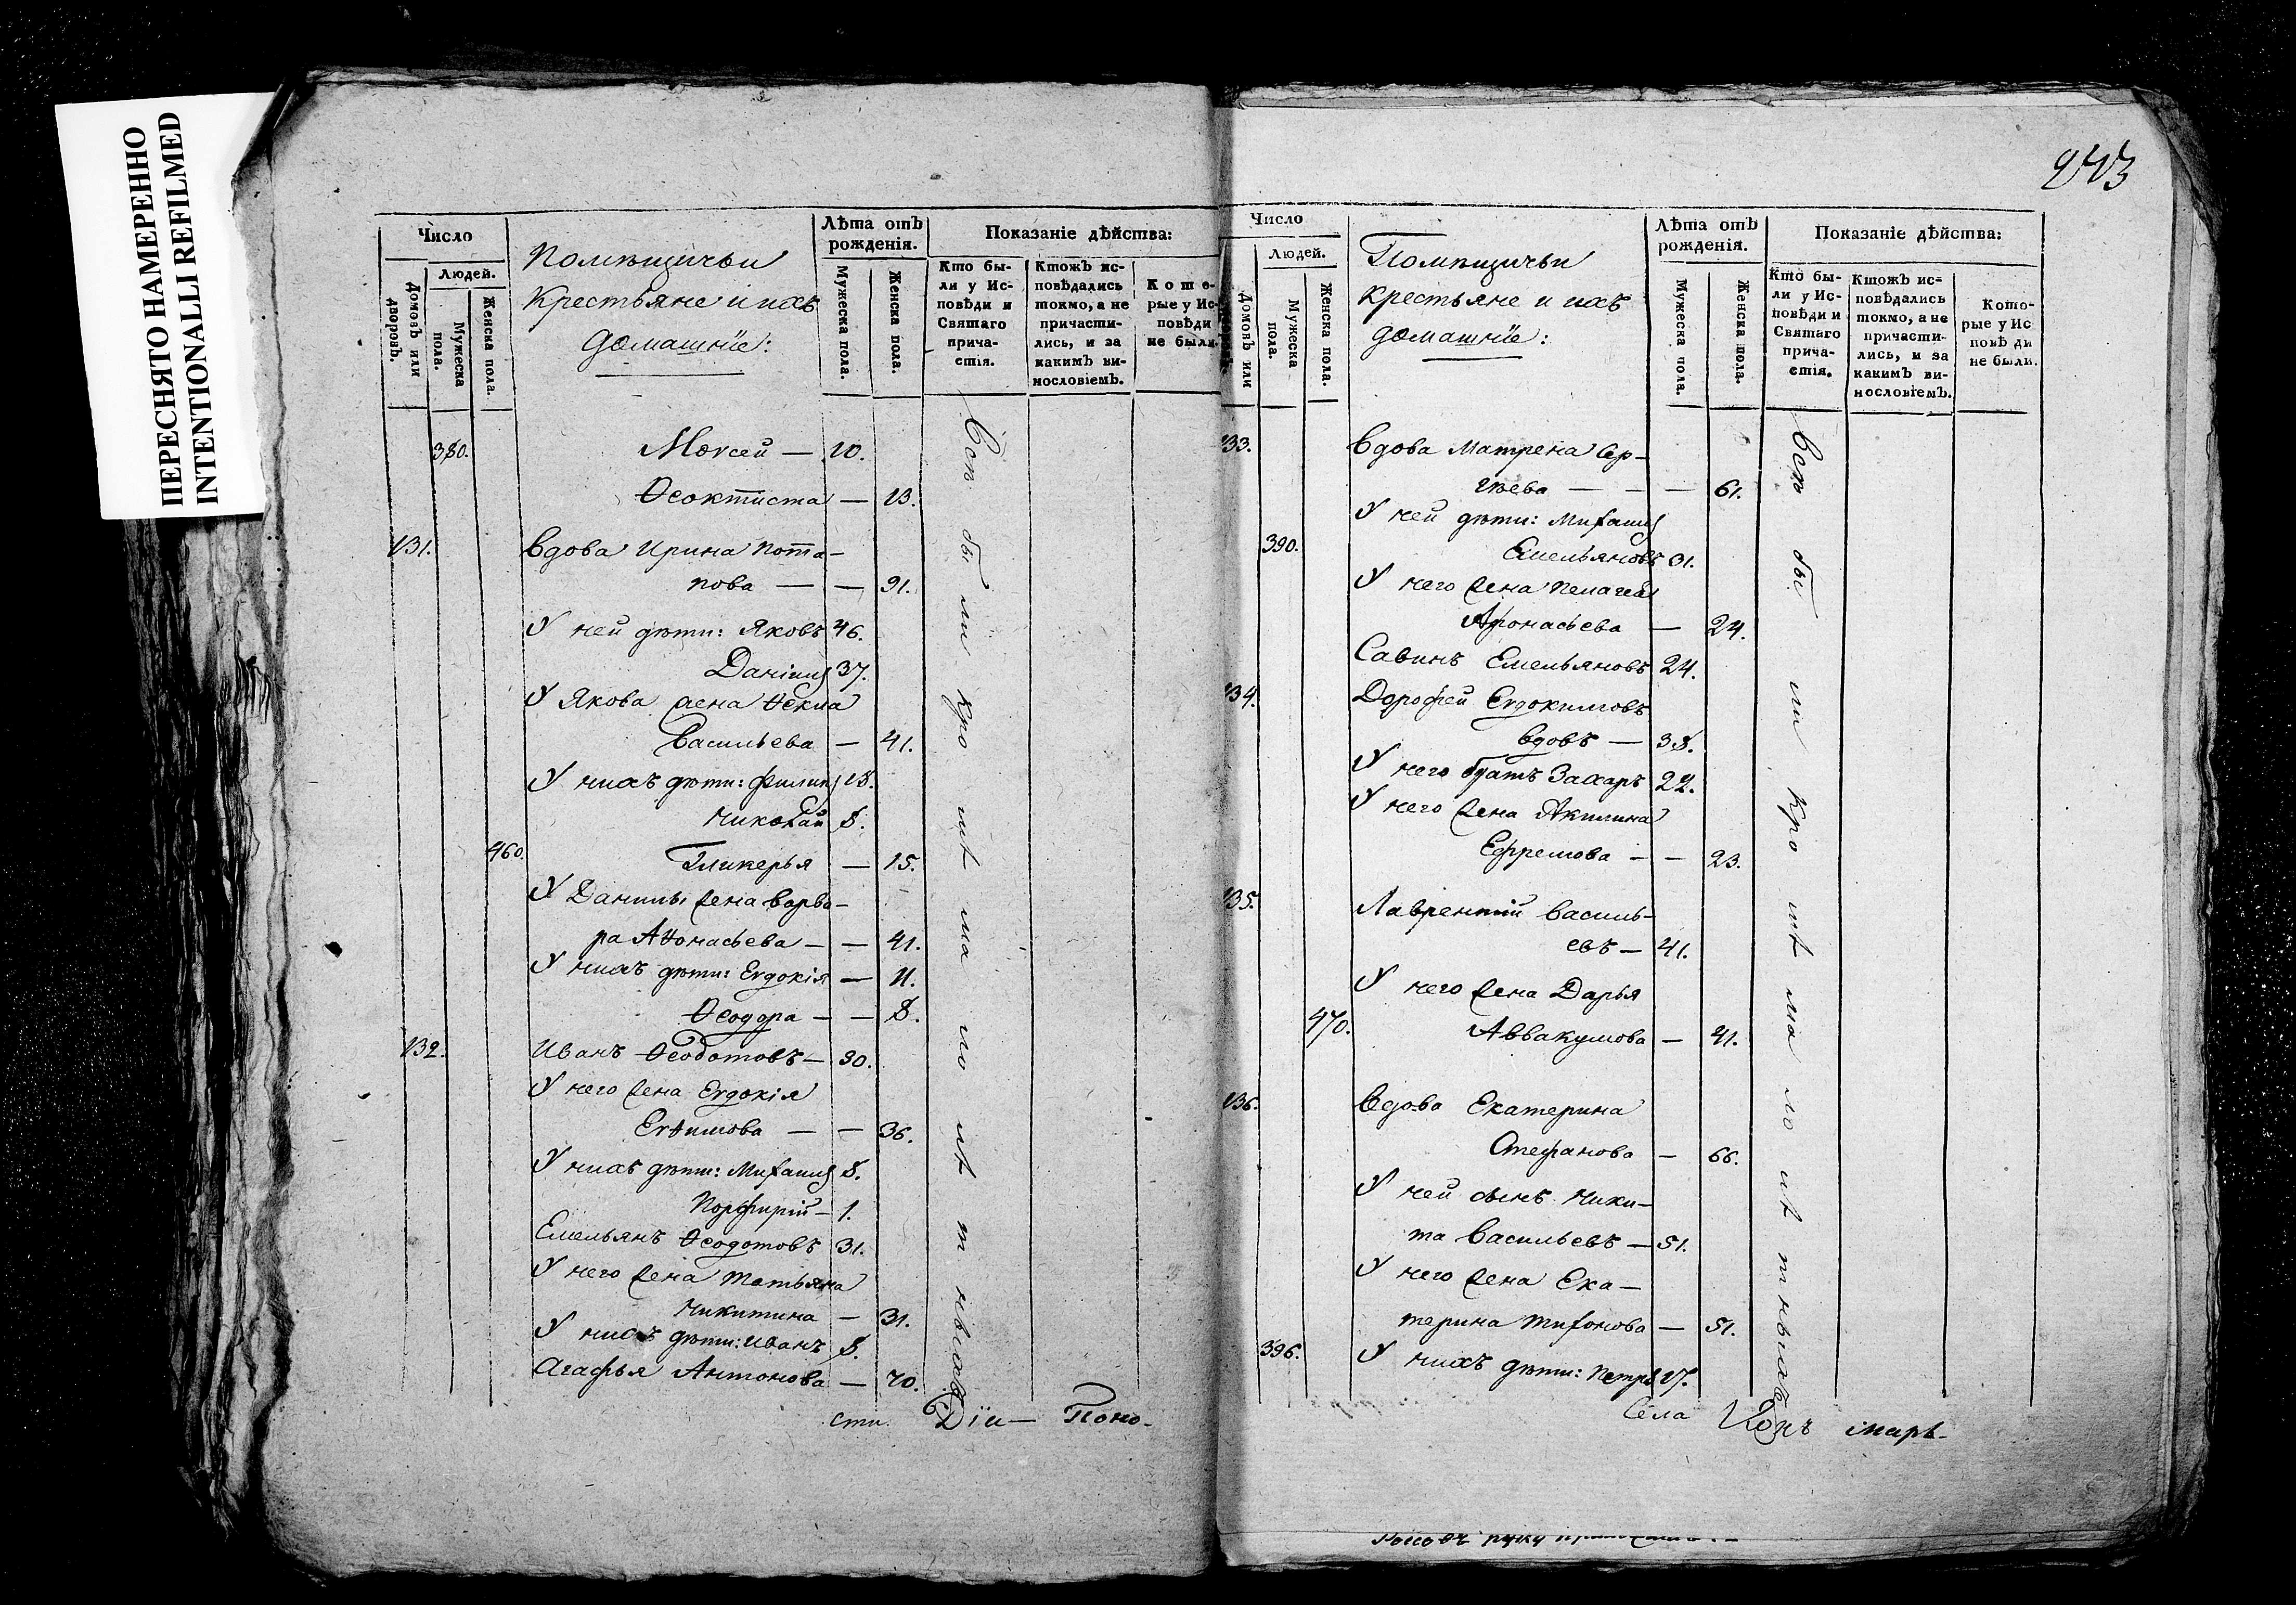 ПЕРЕСНЯТО НАМЕРЕННО
INTENTIONALLI REFILMED
Число
Людей.
Домовъ или дворовъ.
Мужеска пола.
Женска пола.
Помѣщичьи
Крестьяне и ихъ
домашнїе:
Лѣта отъ рожденія.
Мужеска пола.
Женска пола.
Показаніе дѣйства:
Кто были у Исповѣди и Святаго причастія.
Ктожъ исповѣдались токмо, а не причастились, и за какимъ винословіемъ.
Которые у Исповѣди не были.
380. Моѵсей — 10.
Ѳеоктиста — 13.
131. Вдова Ирина Пота-
пова — — 91.
У ней дѣти: Яковъ 46.
Данїилъ 37.
У Якова жена Ѳекла
Васильева — 41.
У нихъ дѣти: Филипъ 18.
Николай 8.
460. Гликерья — 15.
У Данилы жена Варва-
ра Аѳонасьева — — 41.
У нихъ дѣти: Евдокія — 11.
Ѳеодора — — 8.
132. Иванъ Ѳеодотовъ — 30.
У него жена Евдокія
Евѳимова — — 36.
У нихъ дѣти: Михаилъ 8.
Порфирій — 1.
Емельянъ Ѳеодотовъ 31.
У него жена Татьяна
Никитина — 31.
У нихъ дѣти: Иванъ 8.
Агафья Антонова — 70.
Всѣ были кромѣ малолѣтныхъ
сти. Дїи — Поно-
273
Число
Людей.
Домовъ или
Мужеска пола.
Женска пола.
Помѣщичьи
крестьяне и ихъ
домашнїе:
Лѣта отъ рожденія.
Мужеска пола.
Женска пола.
Показаніе дѣйства:
Кто были у Исповѣди и Святаго причастія.
Ктожъ исповѣдались токмо, а не причастились, и за какимъ винословіемъ.
Которые у Исповѣди не были.
133. Вдова Матрена Сер-
гѣева — — — 61.
У ней дѣти: Михаилъ
390. Емельяновъ 31.
У него жена Пелагея
Афонасьева — 24.
Савинъ Емельяновъ 24.
134. Дорофей Евдокимовъ
вдовъ — 38.
У него братъ Захаръ 22.
У него жена Акилина
Ефремова — — 23.
135. Лаврентій Василь-
евъ — 41.
У него жена Дарья
470. Аввакумова — 41.
136. Вдова Екатерина
Стефанова — 66.
У ней сынъ Ники-
та Васильевъ — 51.
У него жена Ека-
терина Тихонова — 51.
396. У нихъ дѣти: Петръ 17.
Всѣ были кромѣ малолѣтныхъ
Села